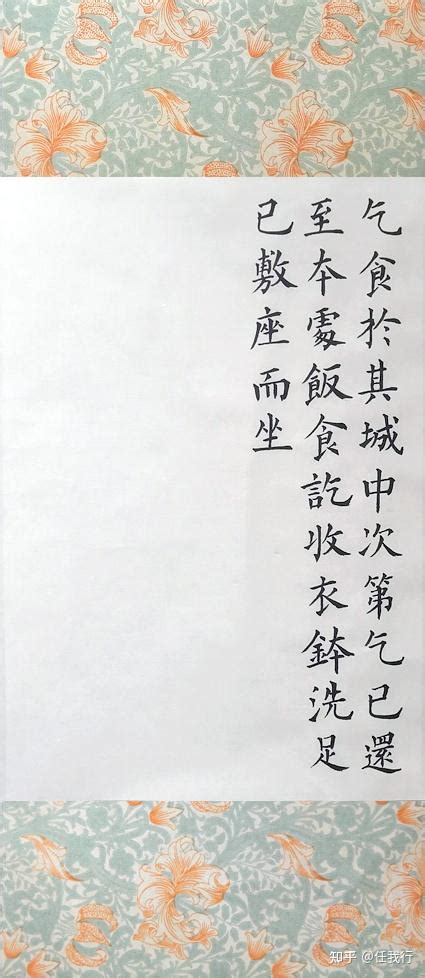 乞食於其城中次第乞已還
至本處飯食訖收衣鉢洗足
已敷座而坐
知乎 @任我行